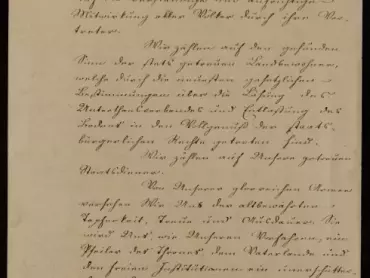 auf die verständige und aufrichtige
Mitwirkung aller Völker durch ihre Ver-
treter.
Wir zählen auf den gesunden
Sinn der stets getreuen Landbewohner,
welche durch die neuesten gesetzlichen
Bestimmungen über die Lösung des
Unterthansverbandes und Entlastung des
Bodens in den Vollgenuß der staats-
bürgerlichen Rechte getreten sind.
Wir zählen auf Unsere getreuen
Staatsdiener.
Von Unserer glorreichen Armee
versehen Wir Uns der altbewährten
Tapferkeit, Treue und Ausdauer. Sie
wird Uns, wie Unseren Vorfahren, ein
Pfeiler des Thrones, dem Vaterlande und
den freien Institutionen ein unerschütter-